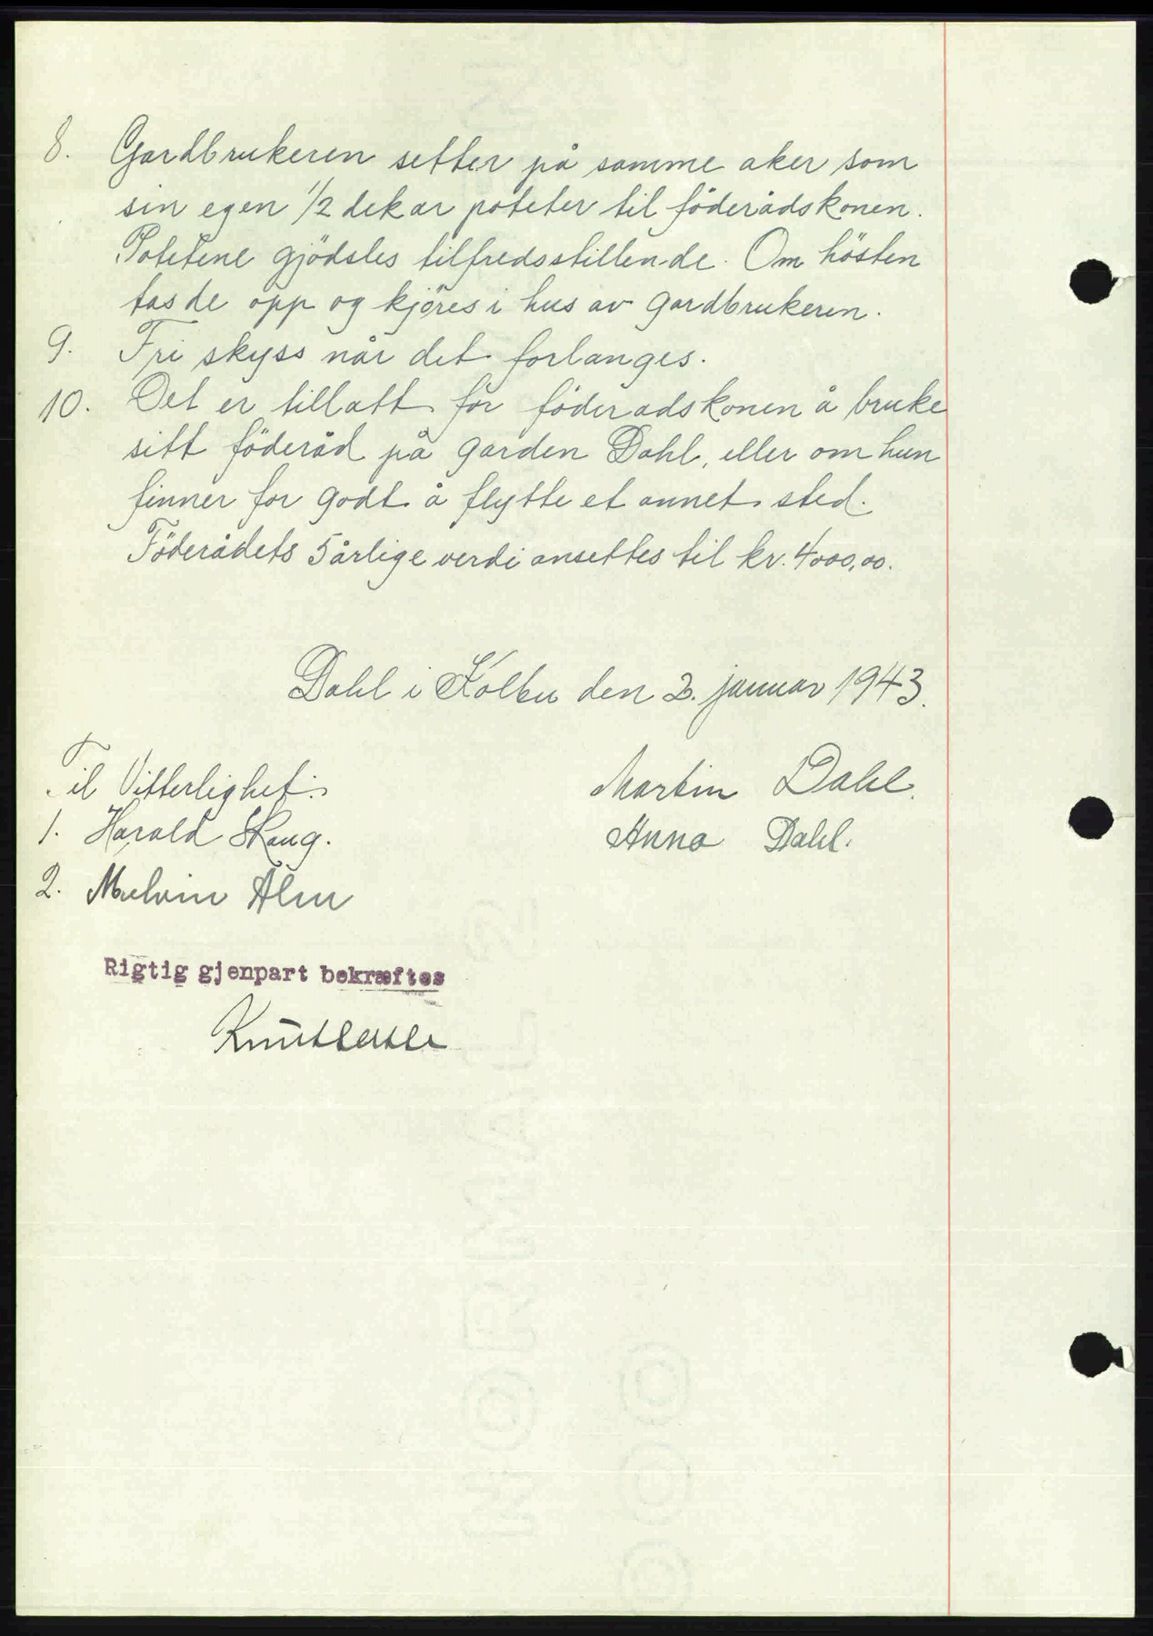 8. Gardbrukeren setter på samme aker som
sin egen 1/2 dekar poteter til föderådskonen.
Potetene gjödsles tilfredsstillende. Om hösten
tas de opp og kjöres i hus av gardbrukeren.
9. Fri skyss når det forlanges.
10. Det er tillatt for föderadskonen å bruke
sitt föderåd på garden Dahl, eller om hun
finner for godt å flytte et annet sted.
Föderådets 5 årlige verdi ansettes til kr. 4000,00.
Dahl i Kolbu den 2. januar 1943.
Til Vitterlighet:
Martin Dahl.
1. Harald Skaug.
Anna Dahl.
2. Melvin Alm
Rigtig gjenpart bekræftes